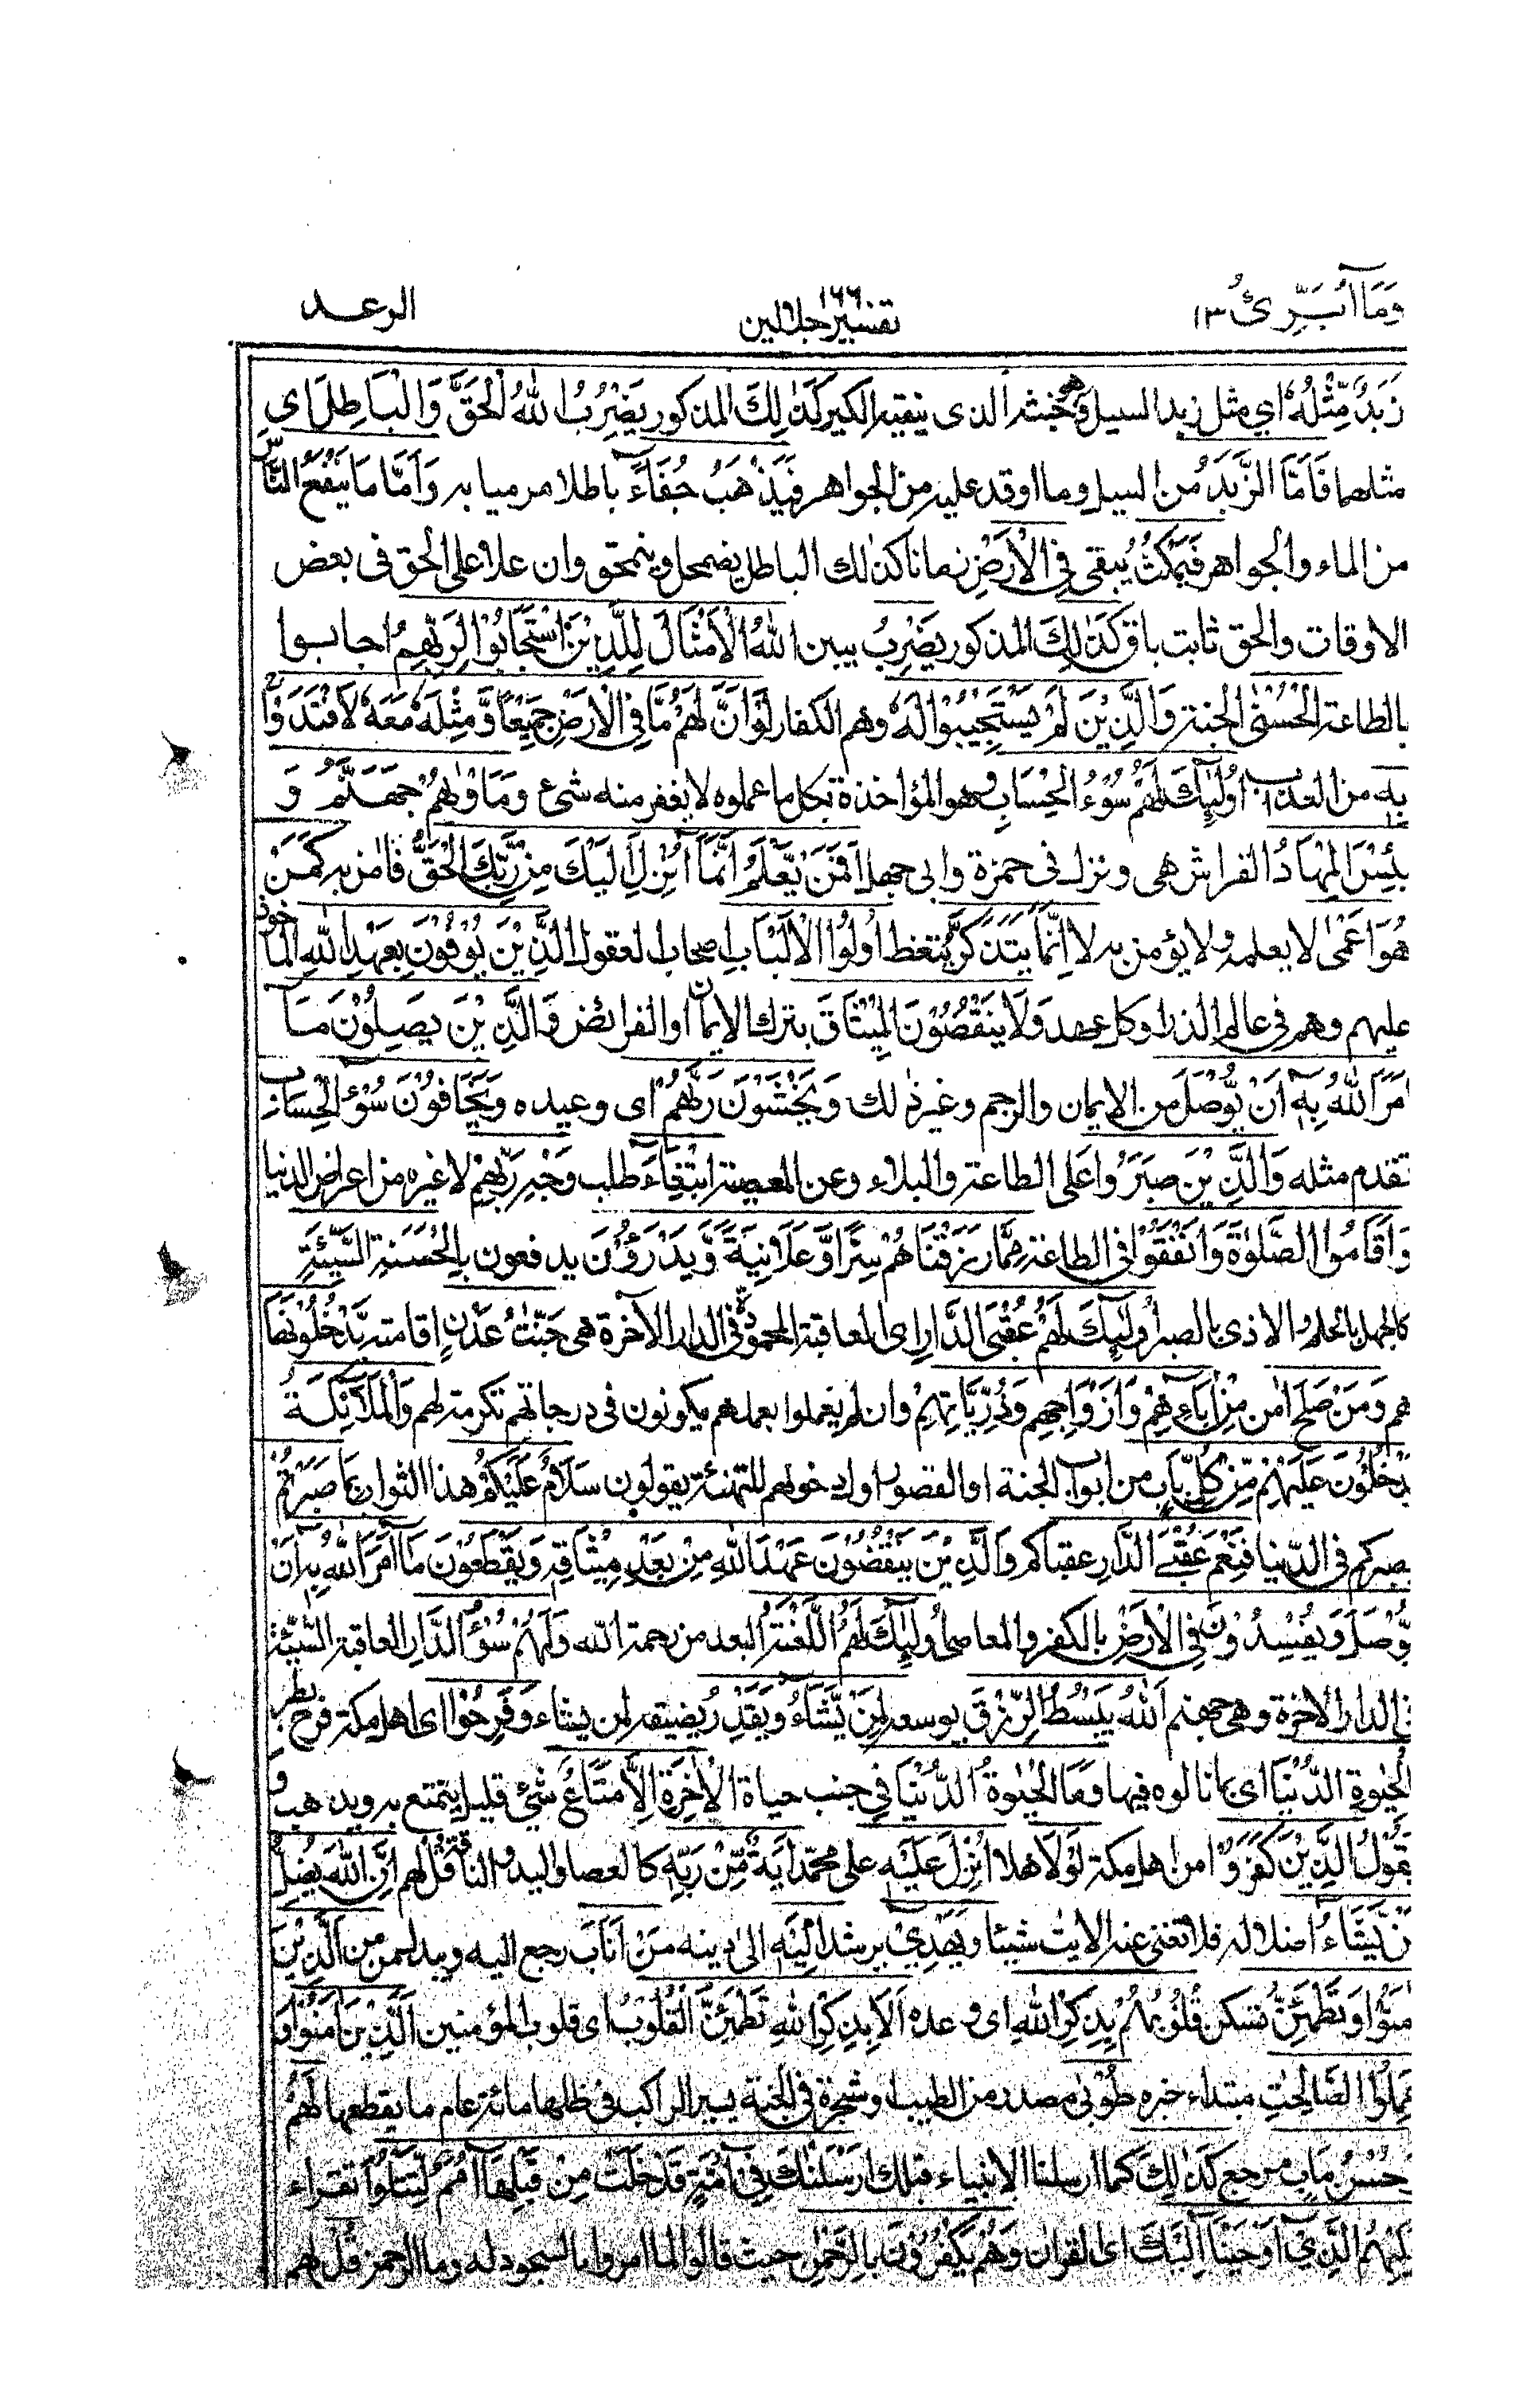 وَمَآ اُبَرِّئُ ١٣
١٦٦
تفسير جلالين
الرعـــد
زَبَدٌ مِّثْلُهٗ اي مثل زبد السيل وهو خبثه الذى ينفيه الكير كَذٰلِكَ المذكور يَضْرِبُ اللهُ الْحَقَّ وَالْبَاطِلَ اى
مثلهما فَاَمَّا الزَّبَدُ من السيل وما اوقد عليه من الجواهر فَيَذْهَبُ جُفَآءً باطلا مرميا به وَاَمَّا مَا يَنْفَعُ النَّاسَ
من الماء والجواهر فَيَمْكُثُ يبقى فِى الْاَرْضِ زمانا كذلك الباطل يضمحل وينمحق وان علا على الحق فى بعض
الاوقات والحق ثابت باق كَذٰلِكَ المذكور يَضْرِبُ يبين اللهُ الْاَمْثَالَ لِلَّذِيْنَ اسْتَجَابُوْا لِرَبِّهِمُ اجابوا
بالطاعة الْحُسْنٰى الجنة وَالَّذِيْنَ لَمْ يَسْتَجِيْبُوْا لَهٗ وهم الكفار لَوْ اَنَّ لَهُمْ مَّا فِى الْاَرْضِ جَمِيْعًا وَّمِثْلَهٗ مَعَهٗ لَافْتَدَوْا
بِهٖ من العذاب اُولٰٓئِكَ لَهُمْ سُوْٓءُ الْحِسَابِ وهو المؤاخذة بكل ما عملوه لا يغفر منه شىء وَمَاْوٰىهُمْ جَهَنَّمُ وَ
بِئْسَ الْمِهَادُ الفراش هى ونزل فى حمزة وابى جهل اَفَمَنْ يَّعْلَمُ اَنَّمَآ اُنْزِلَ اِلَيْكَ مِنْ رَّبِّكَ الْحَقُّ فامن به كَمَنْ
هُوَ اَعْمٰى لا يعلمه ولا يؤمن به لا اِنَّمَا يَتَذَكَّرُ يتعظ اُولُوا الْاَلْبَابِ اصحاب العقول الَّذِيْنَ يُوْفُوْنَ بِعَهْدِ اللهِ الماخوذ
عليهم وهم فى عالم الذر او كل عهد وَلَا يَنْقُضُوْنَ الْمِيْثَاقَ بترك الايمان او الفرائض وَالَّذِيْنَ يَصِلُوْنَ مَــآ
اَمَرَ اللهُ بِهٖٓ اَنْ يُّوْصَلَ من الايمان والرحم وغير ذلك وَيَخْشَوْنَ رَبَّهُمْ اى وعيده وَيَخَافُوْنَ سُوْٓءَ الْحِسَابِ
تقدم مثله وَالَّذِيْنَ صَبَرُوْا على الطاعة والبلاء وعن المعصية ابْتِغَآءَ طلب وَجْهِ رَبِّهِمْ لا غيره من اعراض الدنيا
وَاَقَامُوا الصَّلٰوةَ وَاَنْفَقُوْا فى الطاعة مِمَّا رَزَقْنَاهُمْ سِرًّا وَّعَلَانِيَةً وَّيَدْرَؤُوْنَ يدفعون بِالْحَسَنَةِ السَّيِّئَةَ
كالجهل بالحلم والاذى بالصبر اُولٰٓئِكَ لَهُمْ عُقْبَى الدَّارِ اى العاقبة المحمودة فى الدار الآخرة هى جَنّٰتُ عَدْنٍ اقامة يَّدْخُلُوْنَهَا
هم وَمَنْ صَلَحَ امن مِنْ اٰبَآءِهِمْ وَاَزْوَاجِهِمْ وَذُرِّيَّاتِهِمْ وان لم يعملوا بعملهم يكونون فى درجاتهم تكرمة لهم وَالْمَلٰٓئِكَةُ
يَدْخُلُوْنَ عَلَيْهِمْ مِّنْ كُلِّ بَابٍ من ابواب الجنة او القصور اول دخولهم للتهنئة يقولون سَلَامٌ عَلَيْكُمْ هذا الثواب بِمَا صَبَرْتُمْ
بصبركم فى الدنيا فَنِعْمَ عُقْبَى الدَّارِ عقباكم وَالَّذِيْنَ يَنْقُضُوْنَ عَهْدَ اللهِ مِنْ بَعْدِ مِيْثَاقِهٖ وَيَقْطَعُوْنَ مَآ اَمَرَ اللهُ بِهٖٓ اَنْ
يُّوْصَلَ وَيُفْسِدُوْنَ فِى الْاَرْضِ بالكفر والمعاصى اُولٰٓئِكَ لَهُمُ اللَّعْنَةُ البعد من رحمة الله وَلَهُمْ سُوْٓءُ الدَّارِ العاقبة السيئة
فى الدار الاخرة وهى جهنم اَللهُ يَبْسُطُ الرِّزْقَ يوسعه لِمَنْ يَّشَآءُ وَيَقْدِرُ يضيقه لمن يشاء وَفَرِحُوْا اى اهل مكة فرح بطر
بِالْحَيٰوةِ الدُّنْيَا اى بما نالوه فيها وَمَا الْحَيٰوةُ الدُّنْيَا فِى جنب حياة الْاٰخِرَةِ اِلَّا مَتَاعٌ شئ قليل يتمتع به ويذهب وَ
يَقُوْلُ الَّذِيْنَ كَفَرُوْا من اهل مكة لَوْلَا هلا اُنْزِلَ عَلَيْهِ على محمد اٰيَةٌ مِّنْ رَّبِّهٖ كالعصا واليد والناقة قُلْ لهم اِنَّ اللهَ يُضِلُّ
مَنْ يَّشَآءُ اضلاله فلا تغنى عنه الايت شيئا وَيَهْدِيْٓ يرشد اِلَيْهِ الى دينه مَنْ اَنَابَ رجع اليه ويبدل من من الَّذِيْنَ
اٰمَنُوْا وَتَطْمَئِنُّ تسكن قُلُوْبُهُمْ بِذِكْرِ اللهِ اى وعده اَلَا بِذِكْرِ اللهِ تَطْمَئِنُّ الْقُلُوْبُ اى قلوب المؤمنين اَلَّذِيْنَ اٰمَنُوْا وَ
عَمِلُوا الصَّالِحٰتِ مبتداء خبره طُوْبٰى مصدر من الطيب او شجرة فى الجنة يسير الراكب فى ظلها مائة عام ما يقطعها لَهُمْ
وَحُسْنُ مَاٰبٍ مرجع كَذٰلِكَ كما ارسلنا الانبياء قبلك اَرْسَلْنٰكَ فِىْٓ اُمَّةٍ قَدْ خَلَتْ مِنْ قَبْلِهَآ اُمَمٌ لِّتَتْلُوَا۟ تقراء
عَلَيْهِمُ الَّذِىْٓ اَوْحَيْنَآ اِلَيْكَ اى القران وَهُمْ يَكْفُرُوْنَ بِالرَّحْمٰنِ حيث قالوا لما امروا بالسجود له وما الرحمن قُلْ لهم